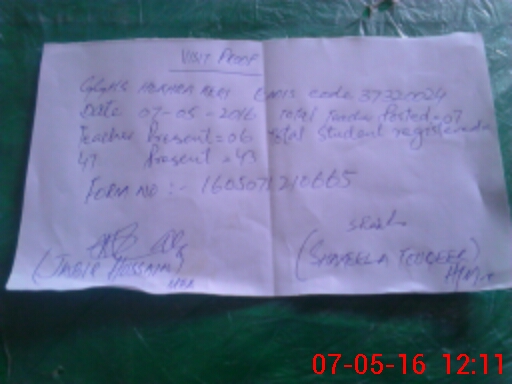 VISIT PROOF
GGHS EMIS code 37320024
Date 07-05-2016 Total Posted=07
Teacher Present=06 total student registered=
47 Present=43
FORM NO :- 1605071210665
(JABIR HUSSAIN) (SHAMEELA TOUQEER)
MEA H/M
07-05-16 12:11